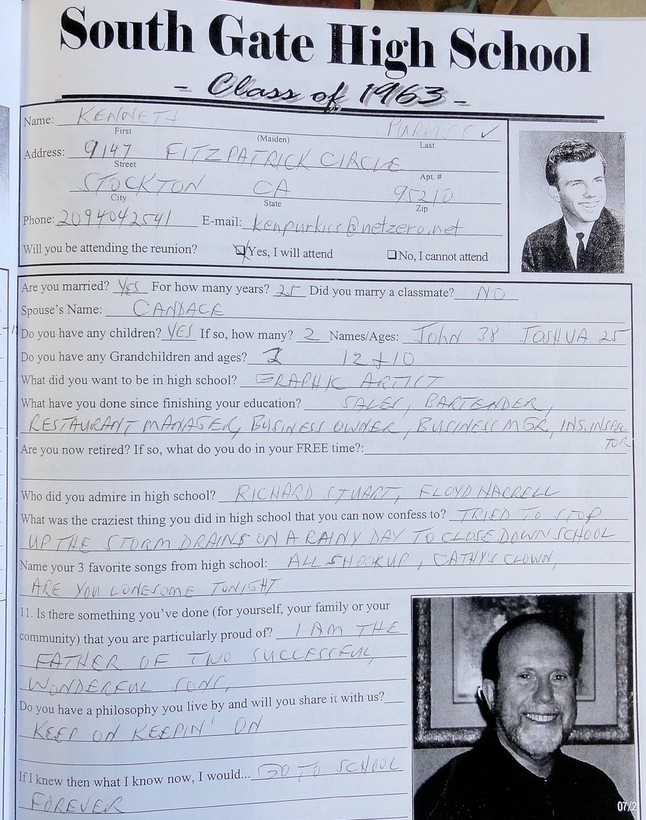 South Gate High School
- Class of 1963 -
Name: KENNETH PURKISS ✓
First (Maiden) Last
Address: 9147 FITZPATRICK CIRCLE
Street Apt. #
STOCKTON CA 95210
City State Zip
Phone: 2094042541 E-mail: kenpurkiss@netzero.net
Will you be attending the reunion? Yes, I will attend No, I cannot attend
Are you married? YES For how many years? 25 Did you marry a classmate? NO
Spouse's Name: CANDACE
Do you have any children? YES If so, how many? 2 Names/Ages: JOHN 38 JOSHUA 25
Do you have any Grandchildren and ages? 2 12 & 10
What did you want to be in high school? GRAPHIC ARTIST
What have you done since finishing your education? SALES, BARTENDER,
RESTAURANT MANAGER, BUSINESS OWNER, BUSINESS MGR, INS. INSPEC
TOR
Are you now retired? If so, what do you do in your FREE time?:
Who did you admire in high school? RICHARD STUART, FLOYD HARRELL
What was the craziest thing you did in high school that you can now confess to? TRIED TO STOP
UP THE STORM DRAINS ON A RAINY DAY TO CLOSE DOWN SCHOOL
Name your 3 favorite songs from high school: ALL SHOOK UP, CATHY'S CLOWN,
ARE YOU LONESOME TONIGHT
11. Is there something you've done (for yourself, your family or your
community) that you are particularly proud of? I AM THE
FATHER OF TWO SUCCESSFUL,
WONDERFUL SONS,
Do you have a philosophy you live by and will you share it with us?
KEEP ON KEEPIN' ON
If I knew then what I know now, I would... GO TO SCHOOL
FOREVER
07/2